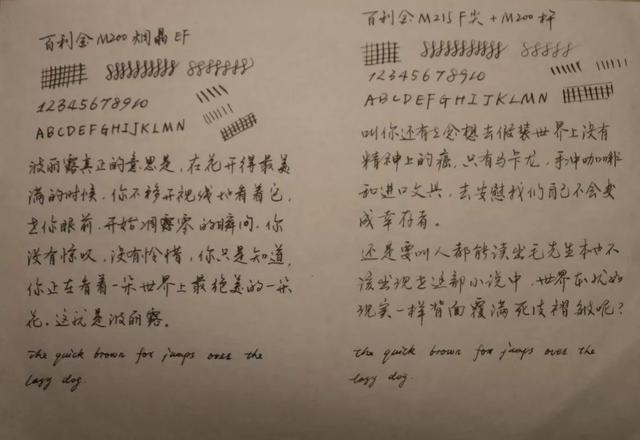 百利金 M200 烟晶 EF
12345678910
ABCDEFGHIJKLMN
波丽露真正的意思是,在花开得最美
满的时候,你不移开视线地看着它,
在你眼前,开始凋零的瞬间,你
没有惊叹,没有怜惜,你只是知道,
你正在看着一朵世界上最绝美的一朵
花。这就是波丽露。
the quick brown fox jumps over the
lazy dog.
百利金 M215 F尖 + M200 杆
12345678910
ABCDEFGHIJKLMN
叫你还有念想去假装世界上没有
精神上的癌,只有马卡龙,手冲咖啡
和进口文具,去安慰我们自己不会变
成幸存者。
还是要叫人都能读出毛先生本也不
该出现在这部小说中,世界本就如
现实一样背面覆满死皮褶皱呢?
the quick brown fox jumps over the
lazy dog.